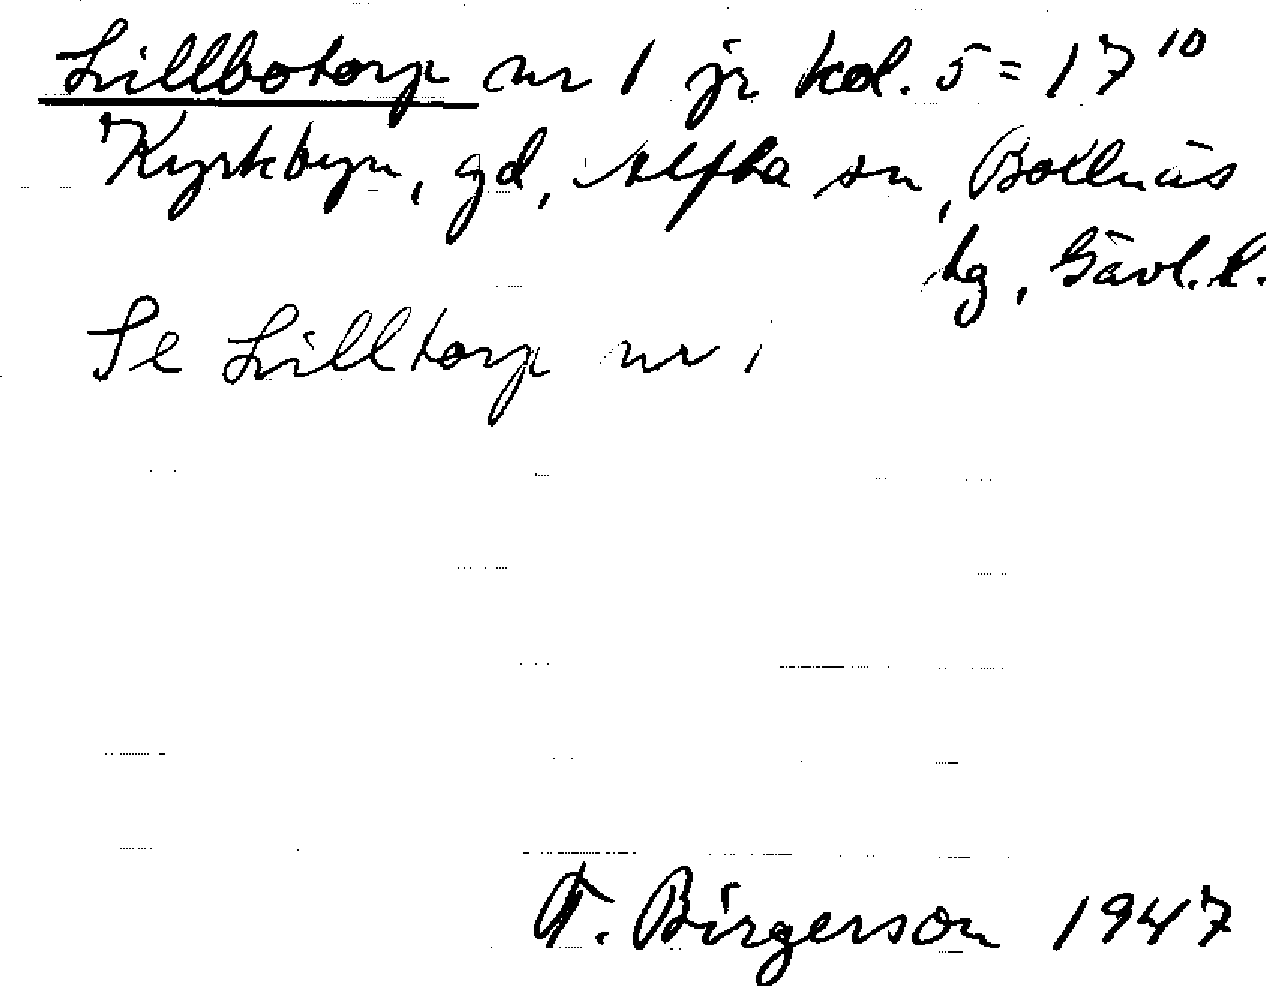 Lillbotorp nr 1 jr kol. 5 = 17¹⁰
Kyrkbyn, gd, Alfta sn, Bollnäs
tg, Gävl. l.
Se Lilltorp nr 1
F. Birgerson 1947